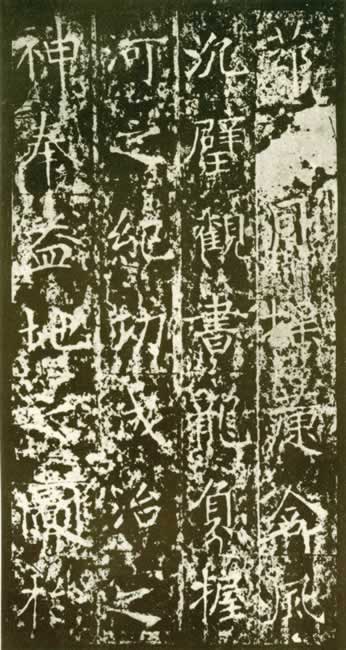 同風
沉璧觀書龍負握
河之紀功成治之
神奉益地之圖於